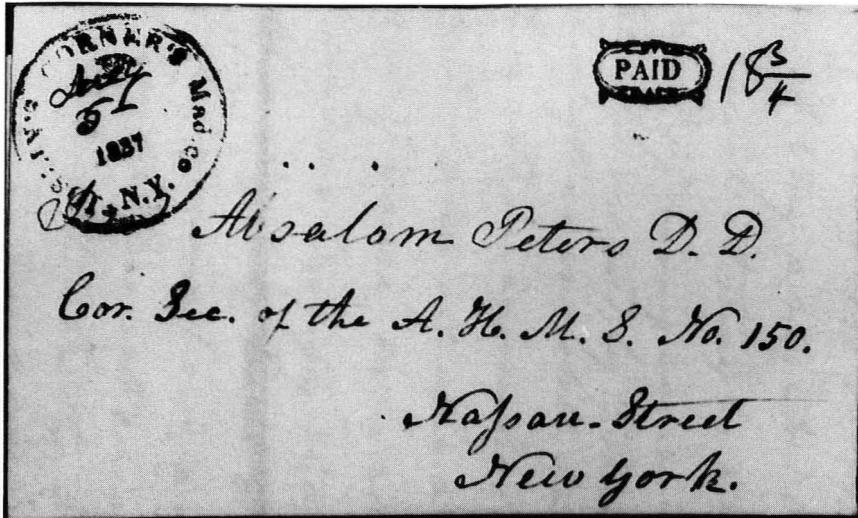 CORNER'S Mad. Co
N.Y.
July
1837
PAID 18 3/4
Absalom Peters D. D.
Cor. Sec. of the A. H. M. S. No. 150.
Naſsau-Street
New York.